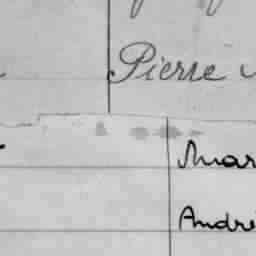 Pierre
Mar
André